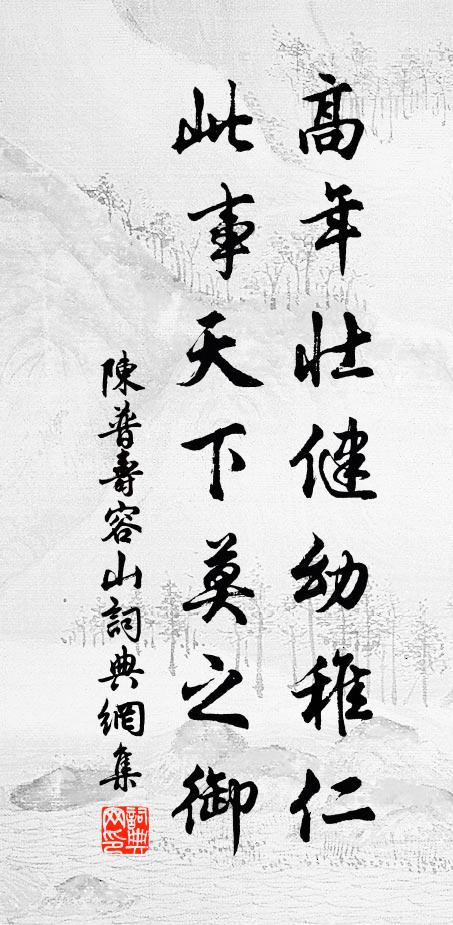 高年壮健幼稚仁
此事天下莫之御
陳普壽容山詞典網集
詞典网印